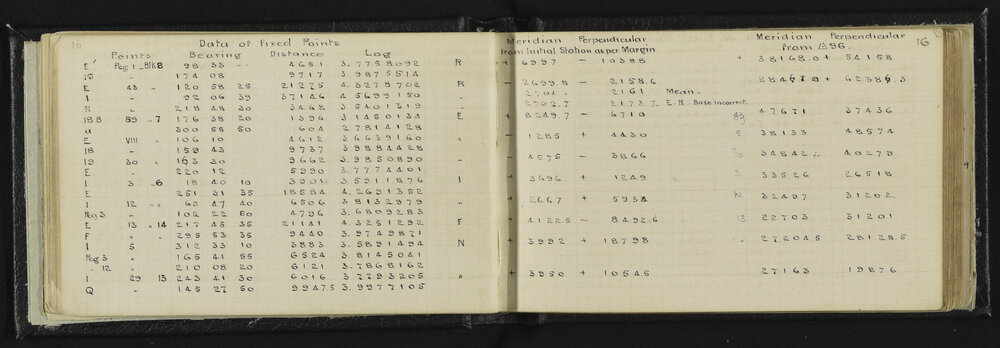 16
Data of Fixed Points
Points Bearing Distance Log
E' Peg 1 - Blk 8 98 33 - - 4651 3.7758092 R
15 " 174 08 9717 3.9875514
E 43 " 120 58 25 21275 4.3278702 R
I " 92 06 39 37146 4.5699150 "
R " 218 48 30 3468 3.5401319 "
18B 59 " 7 176 38 20 1396 3.1450134 E
a 300 55 50 604 2.7814128
E VIII " 106 10 4612 3.6639160 "
18 " 159 43 9737 3.9884428
19 30 " 163 30 9662 3.9850890 "
E " 220 12 5990 3.7774401
I 3 " 6 18 40 10 3901 3.5911876 I
E 251 31 35 18584 4.2691352
I 12 " " 65 47 40 6506 3.8132979 "
Peg 3 " 102 22 50 4796 3.6809283
E 13 " 14 217 45 35 21141 4.3251292 F
F " 295 53 35 9440 3.9749871
I 5 " 312 33 10 3883 3.5891494 N
Peg 3 " 165 41 55 6524 3.8145041
" 12 " 210 08 20 6121 3.7868162
I 29 13 243 41 30 6016 3.7793205 "
Q " 145 27 50 9947.5 3.9977105
16
Meridian Perpendicular Meridian Perpendicular
from Initial Station as per Margin from △96.
+ 6997 - 10388 + 38168.0 + 54158
- 2699.8 - 2158.6 28467.8 + 62386.3
2704 - 2161 Mean -
2702.7 2173.7 E.R. Base incorrect
+ 8249.7 - 6710 47671 37436
- 1285 + 4430 38133 48574
- 4575 - 3866 34842 40279
+ 3696 + 1249 33526 26518
+ 2667 + 5934 N 32497 31202
+ 4122.5 - 8492.6 13 22703 31201
+ 3992 + 18798 27204.5 28128.5
+ 3950 + 10545 27163 19876